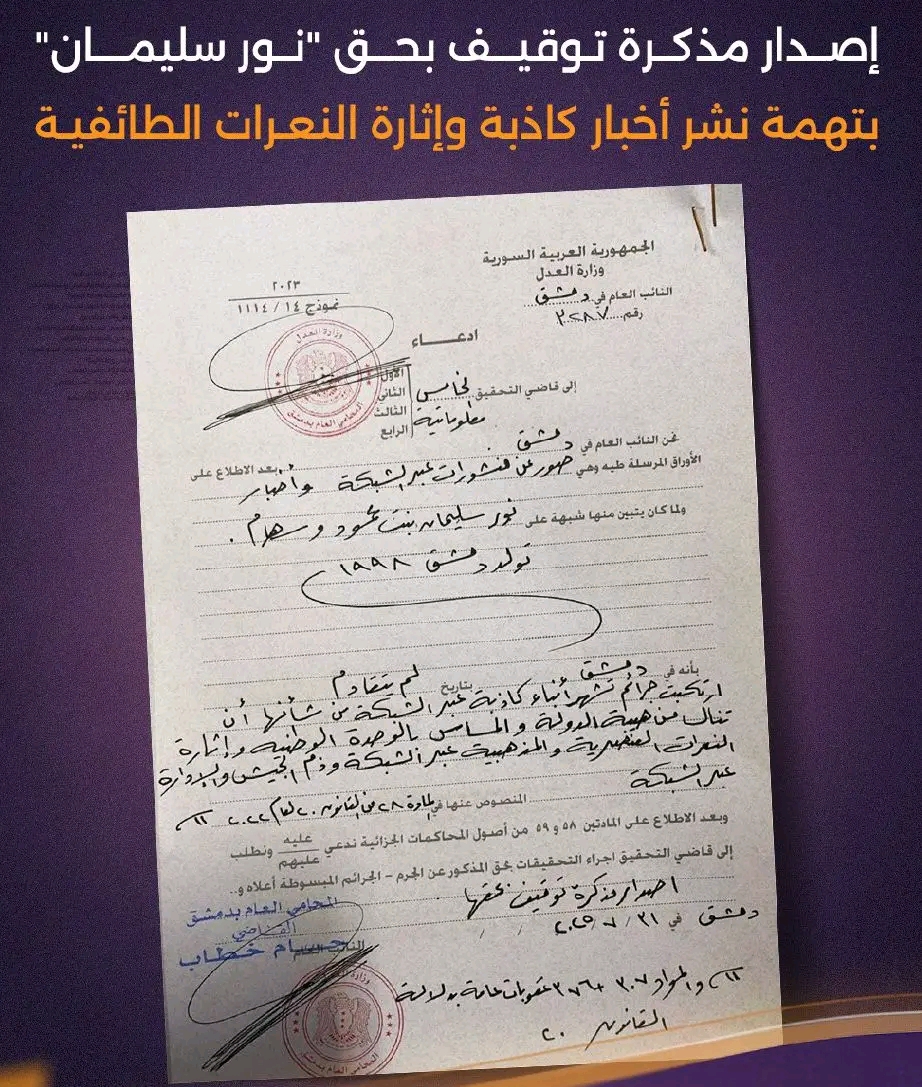 إصدار مذكرة توقيف بحق "نور سليمان"
بتهمة نشر أخبار كاذبة وإثارة النعرات الطائفية
الجمهورية العربية السورية
وزارة العدل
النائب العام في دمشق
رقم ٣٢٨٧
٢٠٢٣
نموذج ١٤ / ١١١٤
وزارة العدل
المحامي العام بدمشق
ادعاء
إلى قاضي التحقيق
الأول
الثاني
الثالث
الرابع
الخامس
معلوماتية
نحن النائب العام في دمشق بعد الاطلاع على
الأوراق المرسلة طيه وهي صور عن منشورات عبر الشبكة وأخبار
ولما كان يتبين منها شبهة على نور سليمان بنت وسهام
تولد دمشق ١٩٩٨
بأنه في دمشق بتاريخ لم يتقادم
ارتكبت جرائم نشر أنباء كاذبة عبر الشبكة من شأنها أن
تنال من هيبة الدولة والمساس بالوحدة الوطنية وإثارة
النعرات العنصرية والمذهبية عبر الشبكة وذم الجيش والإدارة
عبر الشبكة
المنصوص عنها في المادة ٢٨ من القانون ٢٠ لعام ٢٠٢٢
وبعد الاطلاع على المادتين ٥٨ و ٥٩ من أصول المحاكمات الجزائية ندعي عليه عليهم ونطلب
إلى قاضي التحقيق اجراء التحقيقات بحق المذكور عن الجرم - الجرائم المبسوطة أعلاه و..
اصدار مذكرة توقيف بحقها
دمشق في ٣١ / ٧ / ٢٠٢٥
المحامي العام بدمشق
القاضي
النائب العام
حسام خطاب
والمواد ٣٠٧ + ٣٧٦ عقوبات عامة بدلالة
القانون ٢٠